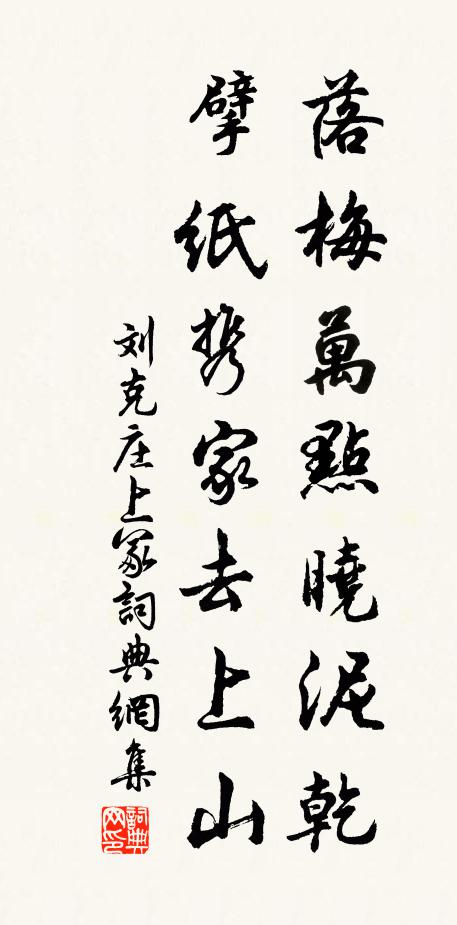 落梅萬點曉泥乾
擘紙携家去上山
刘克庄上冢詞典網集
詞典网印